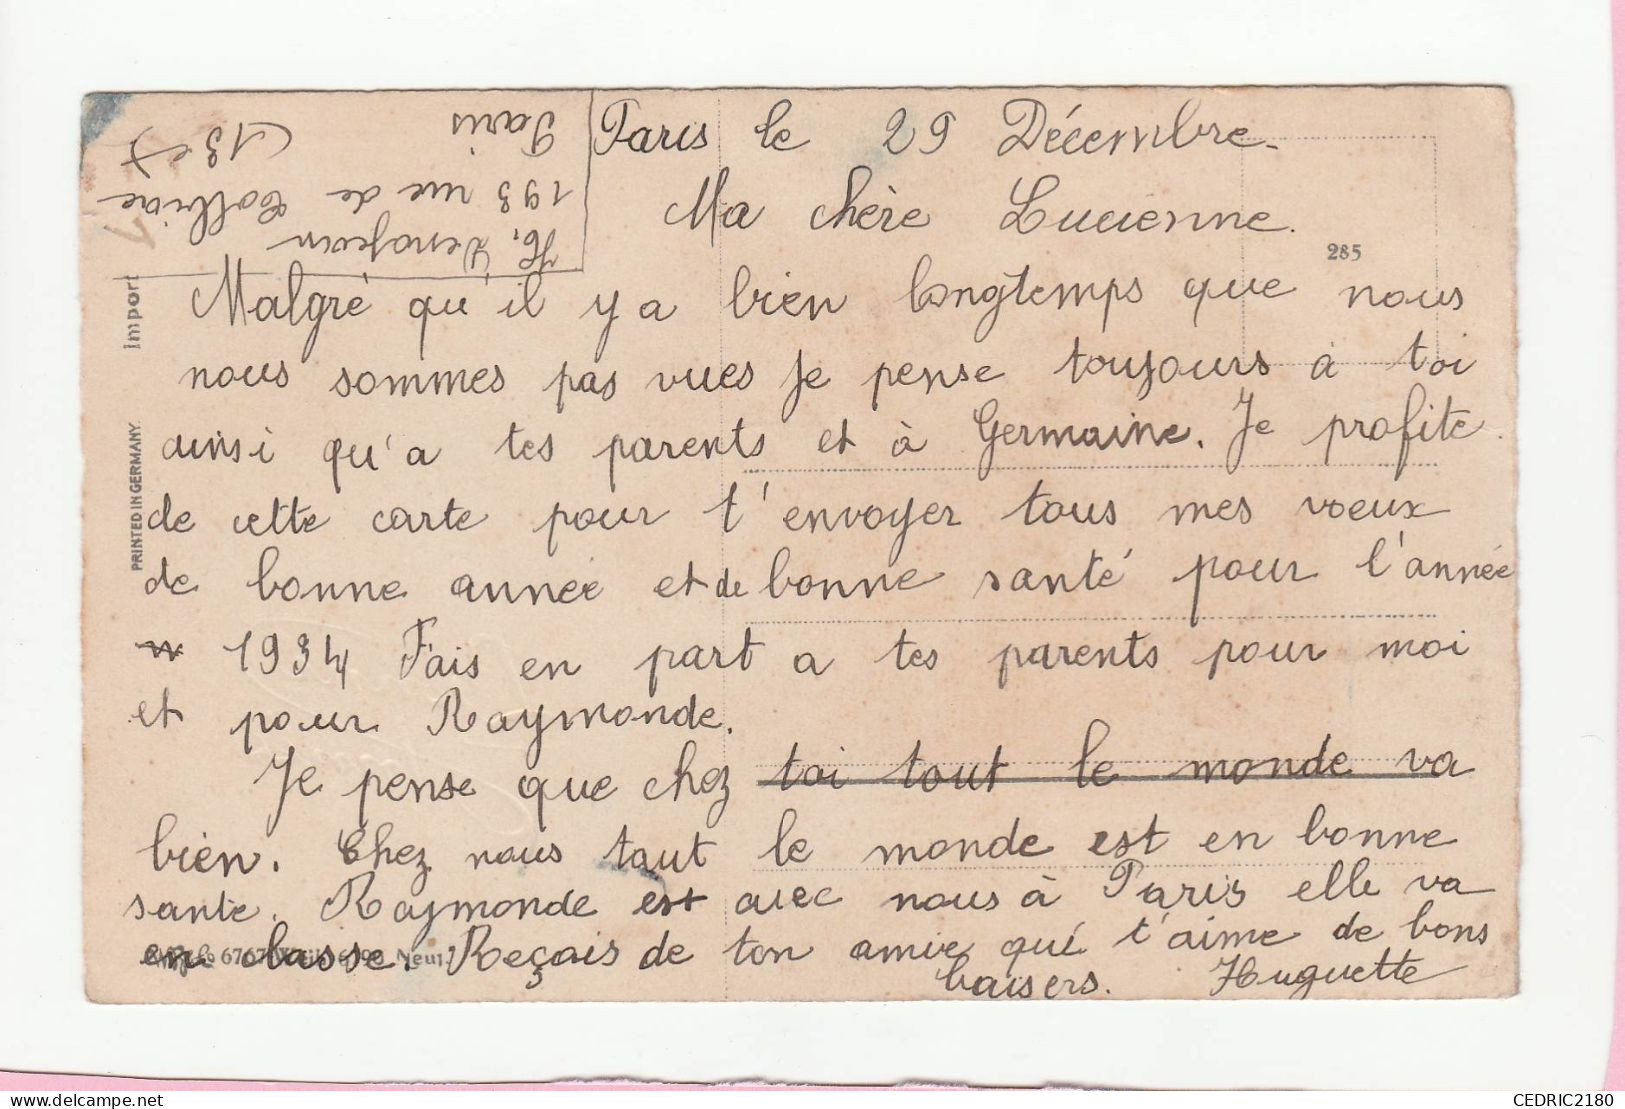 Paris le 29 Décembre.
Ma chère Lucienne.
Malgré qu'il y a bien longtemps que nous
nous sommes pas vues je pense toujours à toi
ainsi qu'a tes parents et à Germaine. Je profite
de cette carte pour t'envoyer tous mes voeux
de bonne année et de bonne santé pour l'année
1934 Fais en part a tes parents pour moi
et pour Raymonde.
Je pense que chez toi tout le monde va
bien. Chez nous tout le monde est en bonne
sante. Raymonde est avec nous à Paris elle va
en classe. Reçois de ton amie qui t'aime de bons
baisers. Huguette
H.
193 rue de Tolbiac
Paris
(13e)
Import
PRINTED IN GERMANY.
285
CEDRIC2180